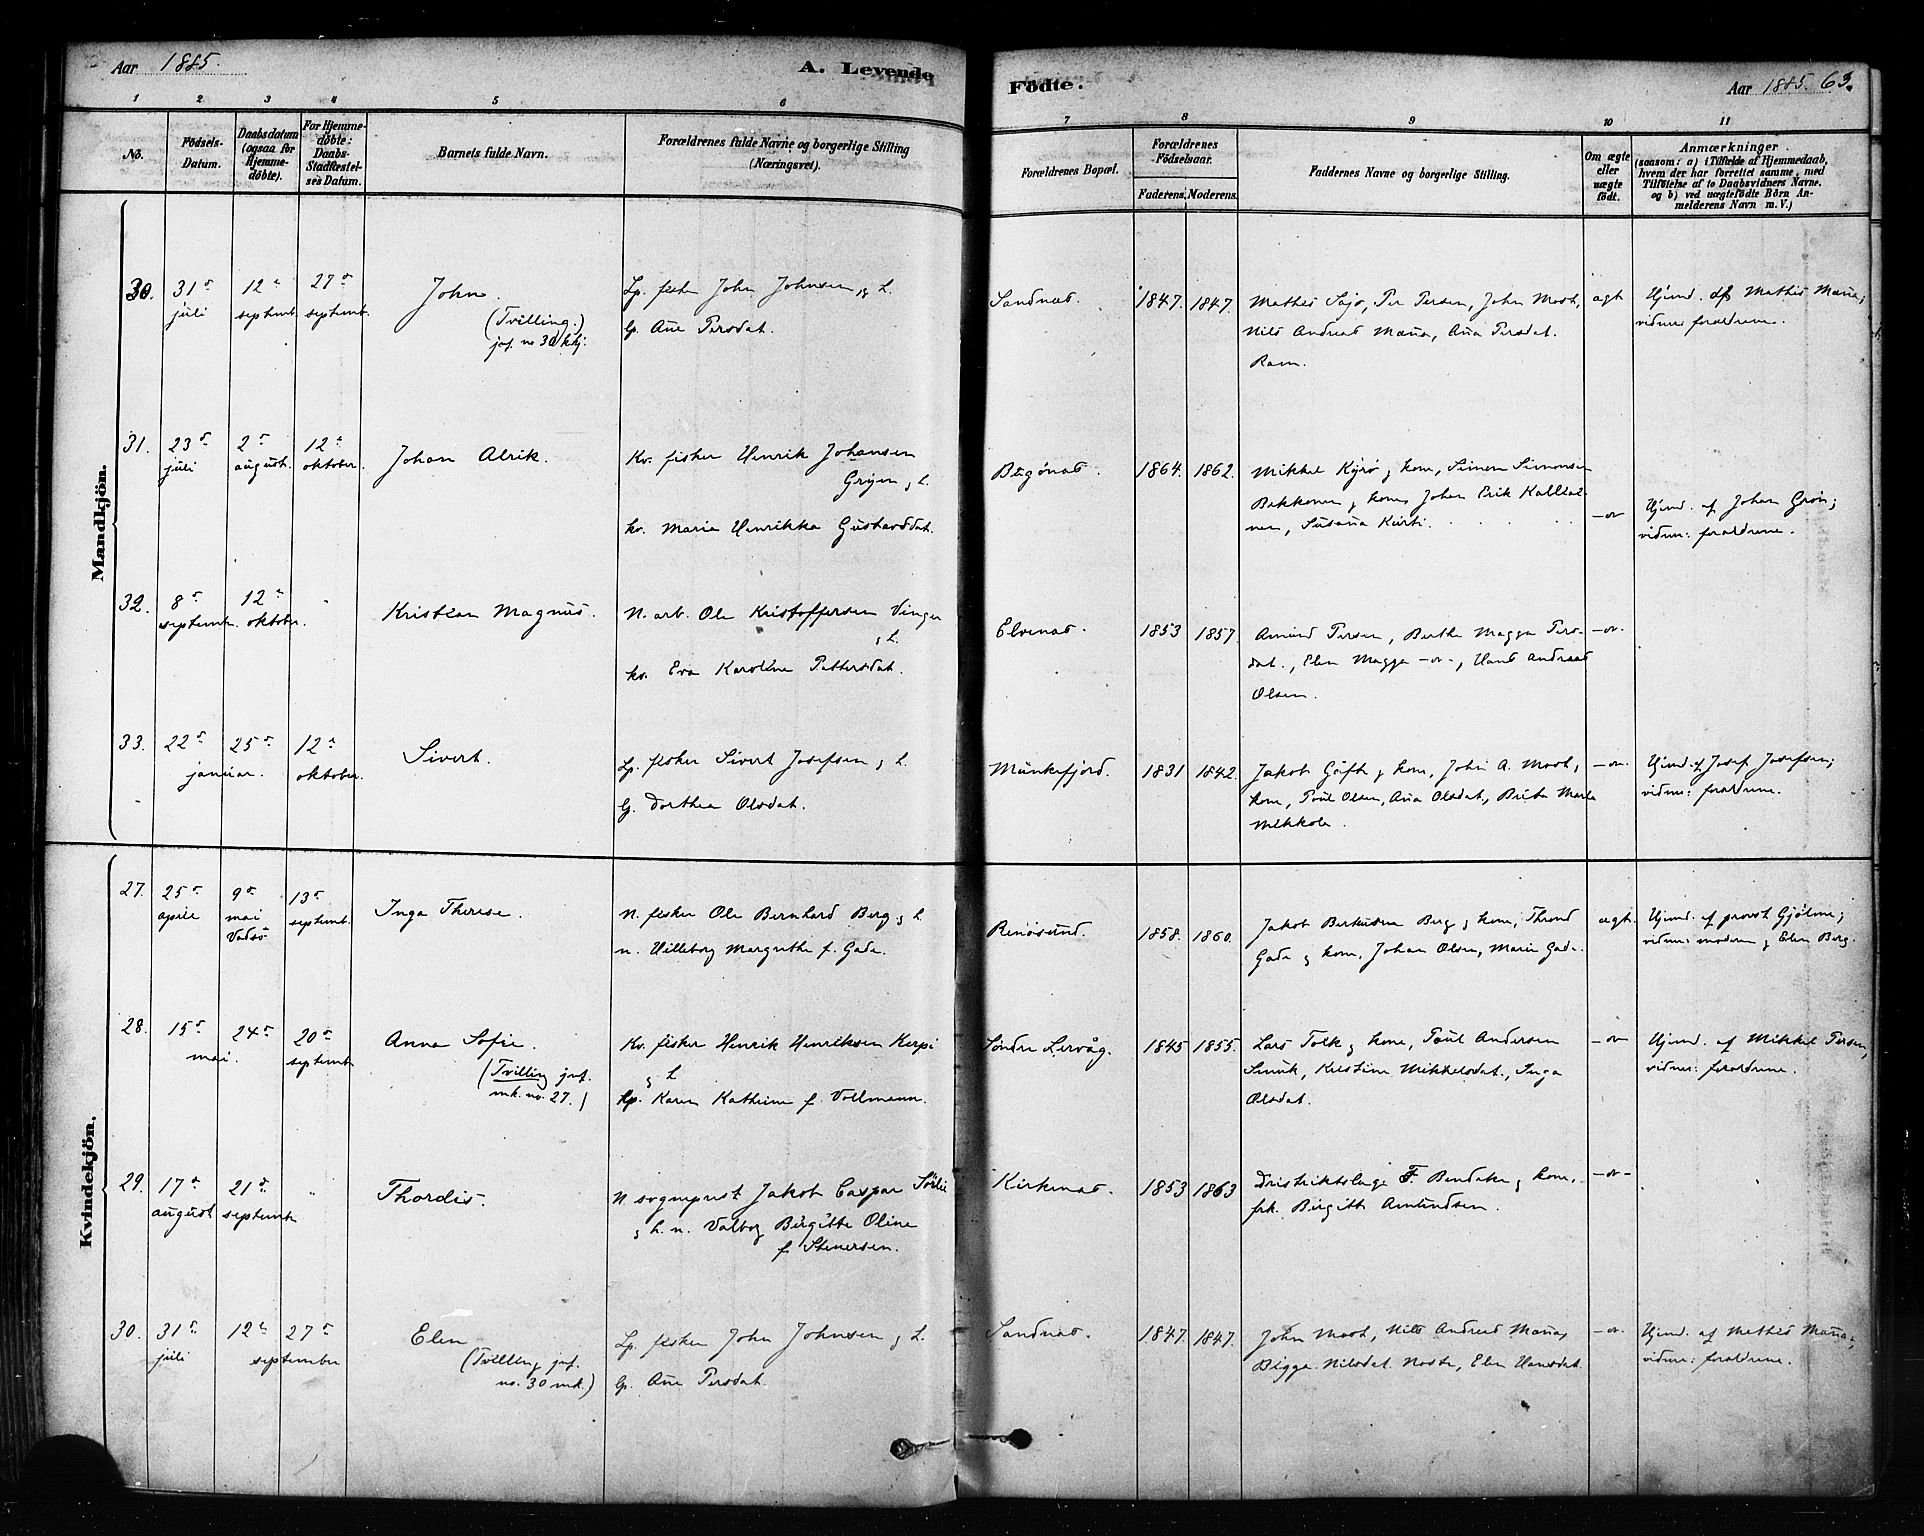 Aar 1885.
A. Levende
Fødte.
Aar 1885. 63.
1 2 3 4 5 6 7 8 9 10 11
No.
Födsels-Datum.
Daabsdatum (ogsaa for Hjemmedöbte).
For Hjemmedöbte: Daabs-Stadfæstelses Datum.
Barnets fulde Navn.
Forældrenes fulde Navne og borgerlige Stilling (Næringsvei).
Forældrenes Bopæl.
Forældrenes Födselsaar.
Faderens. Moderens.
Faddernes Navne og borgerlige Stilling.
Om ægte eller uægte født.
Anmærkninger.
(saasom: a) i Tilfælde af Hjemmedaab,
hvem der har forrettet samme, med
Tilföielse af to Daabsvidners Navne.
og b) ved uægtefödte Börn An-
melderens Navn m. V.)
Mandkjön.
30. 31 juli 12 septemb. 27 septemb.
John.
(Tvilling.)
jvf. no 30 kvkj.
Lp. fisker John Johnsen og h.
lp. Ane Persdat.
Sandnæs. 1847. 1847.
Mathis Sajo, Per Persen, John Mosh,
Nils Andreas Manna, Ana Persdat.
Ram.
ægt
Hjemd. af Mathis Manna;
vidner forældrene.
31. 23 juli 2 august. 12 oktober.
Johan Alrik.
Kv. fisker Henrik Johansen
Grøjen og h.
kv. Maria Henrikka Gustavsdat.
Bugønæs. 1864. 1862.
Mikkel Kyrø og kone, Simon Simonsen
Bakkonen og kone, Johan Erik Kallial-
nen, Susana Kurti.
-or-
Hjemd. af Johan Grøn;
vidner: forældrene.
32. 8 septembr. 12 oktober.
Kristian Magnus.
N. arb. Ole Kristoffersen Vinger
og h.
kv. Eva Karoline Pettersdat.
Elvenæs. 1853 1857.
Amund Persen, Berthe Magga Pers-
dat., Elen Magga -or-, Hans Andreas
Olsen.
-or-
33. 22 25 januar. 12 oktober.
Sivert.
Lp. fisker Sivert Josefsen og h.
lp. Dorthea Olsdat.
Munkefjord. 1831 1842.
Jakob Gøft og kone, John A. Mosh,
kone, Poul Olsen, Ana Olsdat., Brita Maria
Mikkola.
-or-
Hjemd. af Josef Josefsen;
vidner: forældrene.
Kvindekjön.
27. 25 april 9 mai Vadsø 13 septemb.
Inga Therese.
N. fisker Ole Bernhard Berg og h.
n. Villeborg Margrethe f. Gade.
Renøsund. 1858. 1860.
Jakob Berthusen Berg og kone, Thrond
Gade og kone, Johan Olsen, Marie Gade.
ægt.
Hjemd. af provst Gjølme;
vidner: moderen og Elen Berg.
28. 15 24 mai. 20 septemb.
Anna Sofie.
(Tvilling jvf.
mk. no. 27.)
Kv. fisker Henrik Henriksen Kerpi
og h.
lp. Karen Kathrine f. Vollmann.
Søndre Lervåg. 1845 1855.
Lars Tolk og kone, Poul Andersen
Smuk, Kristine Mikkelsdat., Inga
Olsdat.
-or-
Hjemd. af Mikkel Persen,
vidner: forældrene.
29. 17 august 21 septembr
Thordis.
N. sogneprest Jakob Caspar Sörlie
og h. n. Valborg Birgitte Oline
f. Stenersen.
Kirkenæs. 1853 1863
Distriktslæge F. Bendeke og kone,
frk. Birgitte Amundsen.
-or-
30. 31 juli 12 27 september
Elen
(Tvilling jvf.
no. 30 mk.)
Lp. fisker John Johnsen og h.
lp. Ane Persdat.
Sandnæs. 1847. 1847.
John Mosh, Nils Andreas Manna,
Bigga Nilsdat. Noste, Elen Hansdat.
-or-
Hjemd. af Mathis Manna;
vidner: forældrene.